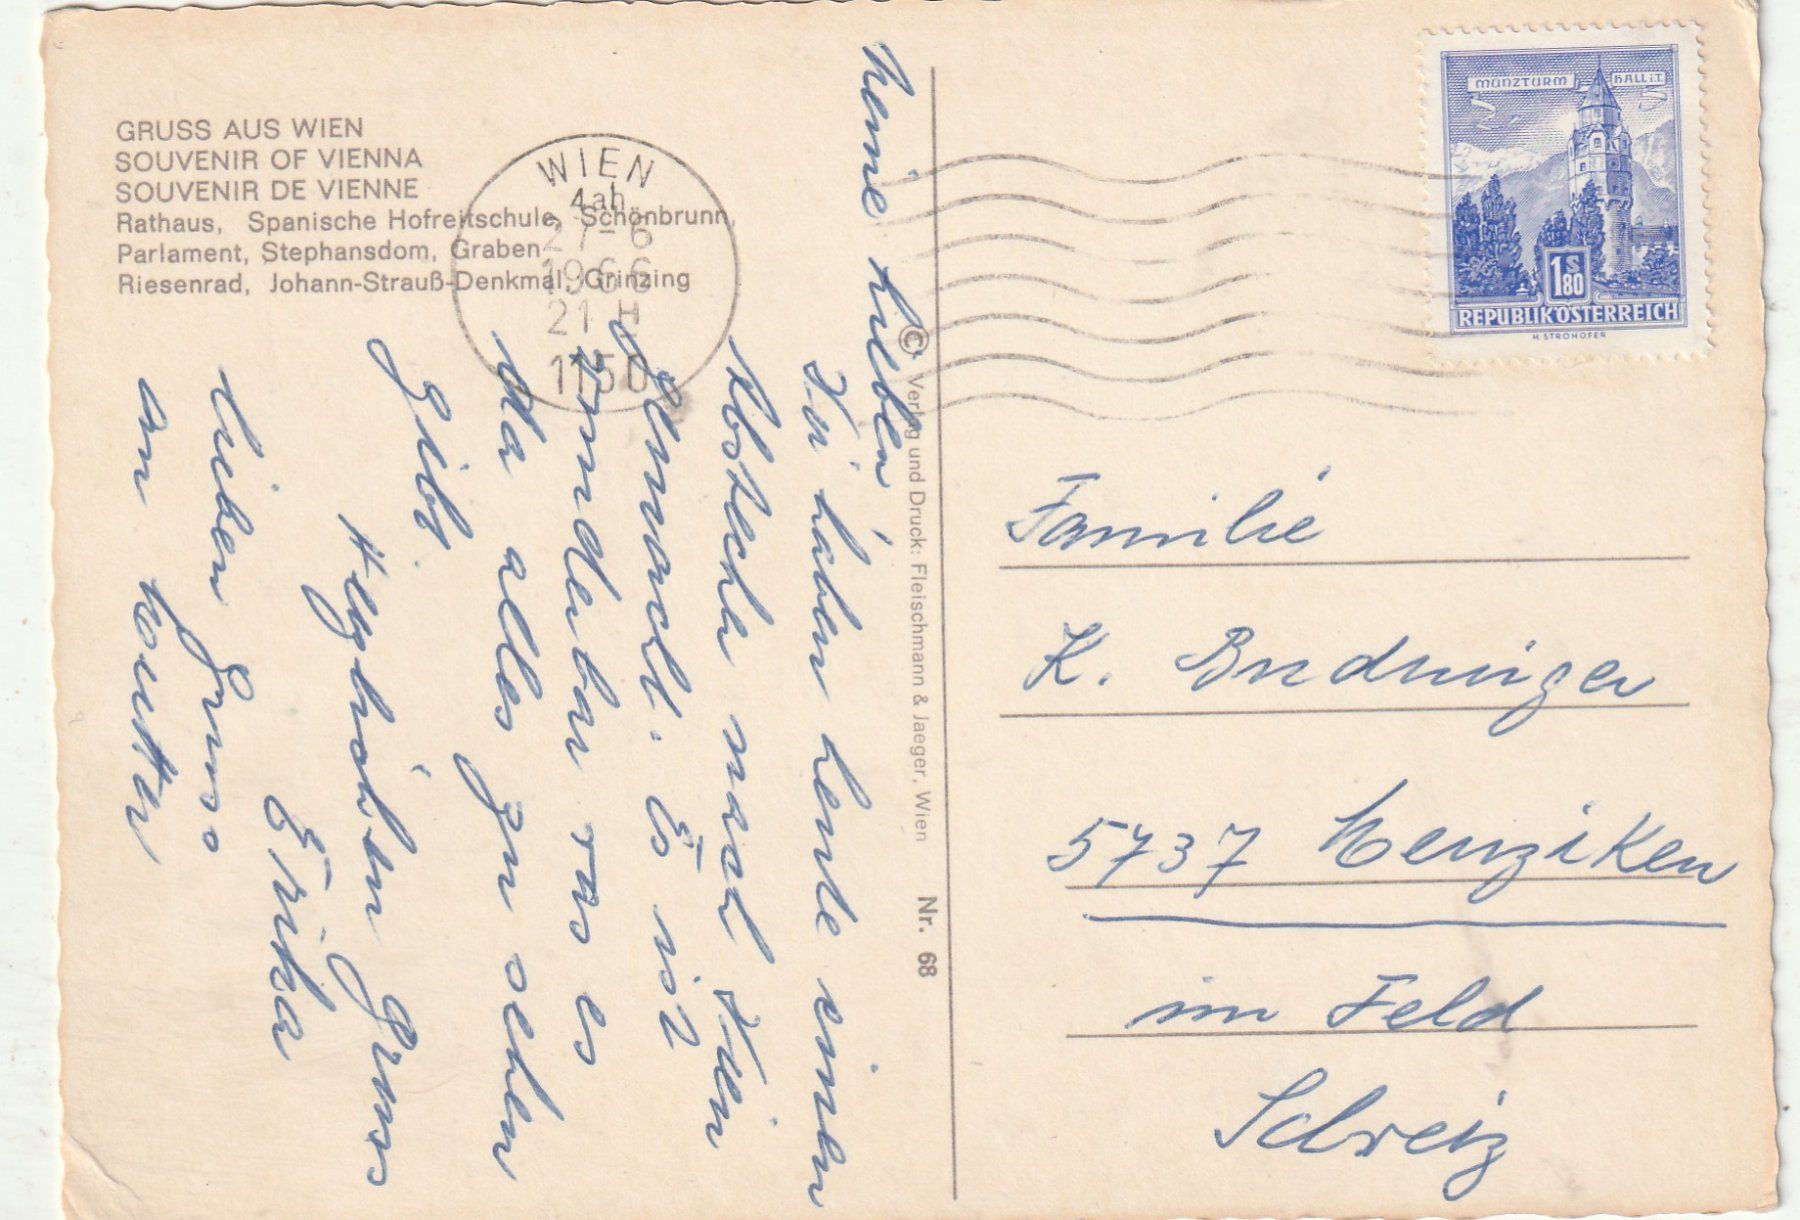 GRUSS AUS WIEN
SOUVENIR OF VIENNA
SOUVENIR DE VIENNE
Rathaus, Spanische Hofreitschule, Schönbrunn,
Parlament, Stephansdom, Graben
Riesenrad, Johann-Strauß-Denkmal, Grinzing
WIEN
4ah
27-6
1966
21 H
1150
Meine Lieben
Wir haben heute einen
Abstecher nach Wien
gemacht. Es ist
wunderbar was es
da alles zu sehen
gibt.
Herzlichen Gruss
Erika
lieben Gruss
an
© Verlag und Druck: Fleischmann & Jaeger, Wien Nr. 68
MÜNZTURM HALL i.T.
1S 80
REPUBLIK ÖSTERREICH
H. STROHOFER
Familie
K.
5737 Menziken
im Feld
Schweiz